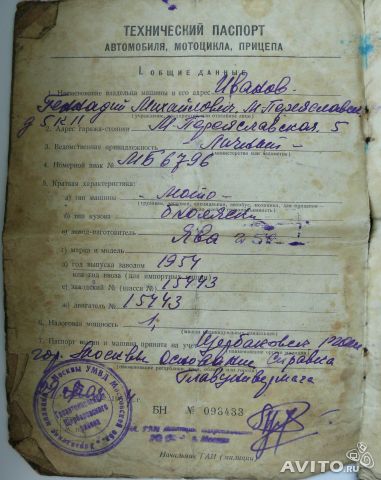 ТЕХНИЧЕСКИЙ ПАСПОРТ
АВТОМОБИЛЯ, МОТОЦИКЛА, ПРИЦЕПА
I. ОБЩИЕ ДАННЫЕ
1. Наименование владельца машины и его адрес Иванов
Геннадий Михайлович М. Переяславск
д 5 к 11
2. Адрес гаража-стоянки М-Переяславская. 5
3. Ведомственная принадлежность Личный
4. Номерной знак № МБ 6796
5. Краткая характеристика:
а) тип машины - мото -
б) тип кузова
в) завод-изготовитель Ява
г) марка и модель
д) год выпуска заводом 1954
или год ввоза (для импортных машин)
е) заводской № (шасси №) 15443
ж) двигатель № 15443
6. Налоговая мощность 1,
7. Паспорт выдан и машина принята на учет Щербаковск
гор. Москвы основание справка
Главунивермага
БН № 093433
Начальник ГАИ (милиции)
AVITO.ru